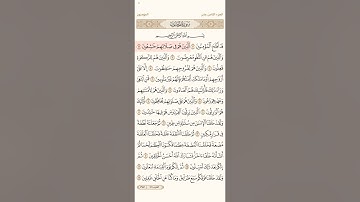 الجزء الثامن عشر المؤمنون
سُورَةُ المُؤْمِنُونَ
بِسْمِ ٱللَّهِ ٱلرَّحْمَٰنِ ٱلرَّحِيمِ
قَدْ أَفْلَحَ ٱلْمُؤْمِنُونَ ١ ٱلَّذِينَ هُمْ فِي صَلَاتِهِمْ خَٰشِعُونَ ٢
وَٱلَّذِينَ هُمْ عَنِ ٱللَّغْوِ مُعْرِضُونَ ٣ وَٱلَّذِينَ هُمْ لِلزَّكَوٰةِ
فَٰعِلُونَ ٤ وَٱلَّذِينَ هُمْ لِفُرُوجِهِمْ حَٰفِظُونَ ٥ إِلَّا عَلَىٰٓ
أَزْوَٰجِهِمْ أَوْ مَا مَلَكَتْ أَيْمَٰنُهُمْ فَإِنَّهُمْ غَيْرُ مَلُومِينَ ٦ فَمَنِ ٱبْتَغَىٰ
وَرَآءَ ذَٰلِكَ فَأُو۟لَٰٓئِكَ هُمُ ٱلْعَادُونَ ٧ وَٱلَّذِينَ هُمْ لِأَمَٰنَٰتِهِمْ
وَعَهْدِهِمْ رَٰعُونَ ٨ وَٱلَّذِينَ هُمْ عَلَىٰ صَلَوَٰتِهِمْ يُحَافِظُونَ ٩ أُو۟لَٰٓئِكَ
هُمُ ٱلْوَٰرِثُونَ ١٠ ٱلَّذِينَ يَرِثُونَ ٱلْفِرْدَوْسَ هُمْ فِيهَا خَٰلِدُونَ ١١
وَلَقَدْ خَلَقْنَا ٱلْإِنسَٰنَ مِن سُلَٰلَةٍ مِّن طِينٍ ١٢ ثُمَّ جَعَلْنَٰهُ نُطْفَةً
فِي قَرَارٍ مَّكِينٍ ١٣ ثُمَّ خَلَقْنَا ٱلنُّطْفَةَ عَلَقَةً فَخَلَقْنَا ٱلْعَلَقَةَ
مُضْغَةً فَخَلَقْنَا ٱلْمُضْغَةَ عِظَٰمًا فَكَسَوْنَا ٱلْعِظَٰمَ لَحْمًا ثُمَّ
أَنشَأْنَٰهُ خَلْقًا ءَاخَرَ فَتَبَارَكَ ٱللَّهُ أَحْسَنُ ٱلْخَٰلِقِينَ ١٤ ثُمَّ
إِنَّكُم بَعْدَ ذَٰلِكَ لَمَيِّتُونَ ١٥ ثُمَّ إِنَّكُمْ يَوْمَ ٱلْقِيَٰمَةِ تُبْعَثُونَ ١٦
وَلَقَدْ خَلَقْنَا فَوْقَكُمْ سَبْعَ طَرَآئِقَ وَمَا كُنَّا عَنِ ٱلْخَلْقِ غَٰفِلِينَ ١٧